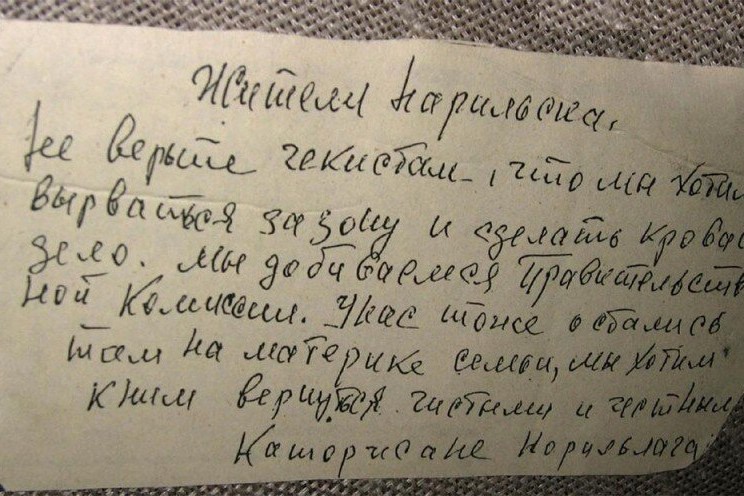 Жители Нарильска,
Не верьте чекистам, что мы хотим
вырваться за зону и сделать кровав
дело. Мы добиваемся Правительств
ной Комиссии. У нас тоже остались
там на материке семьи, мы хотим
к ним вернуться чистыми и честным
Каторжане Норильлага